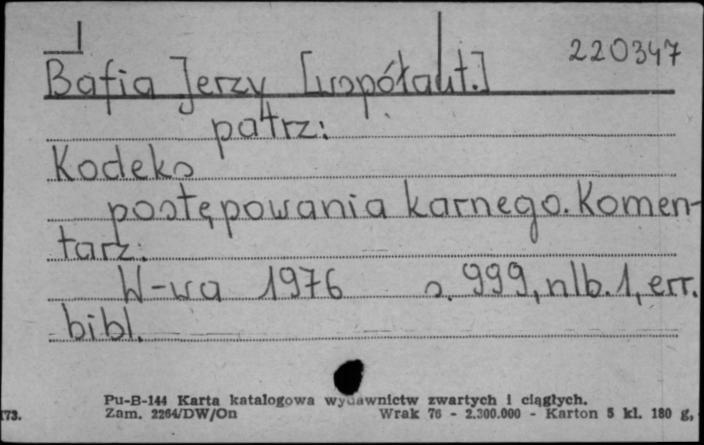 220347
Bafia Jerzy [współaut.]
patrz:
Kodeks
postępowania karnego. Komen-
tarz.
W-wa 1976 s. 999, nlb. 1, err.
bibl.
Pu-B-144 Karta katalogowa wydawnictw zwartych i ciągłych.
173. Zam. 2264/DW/On Wrak 76 - 2.300.000 - Karton 5 kl. 180 g,